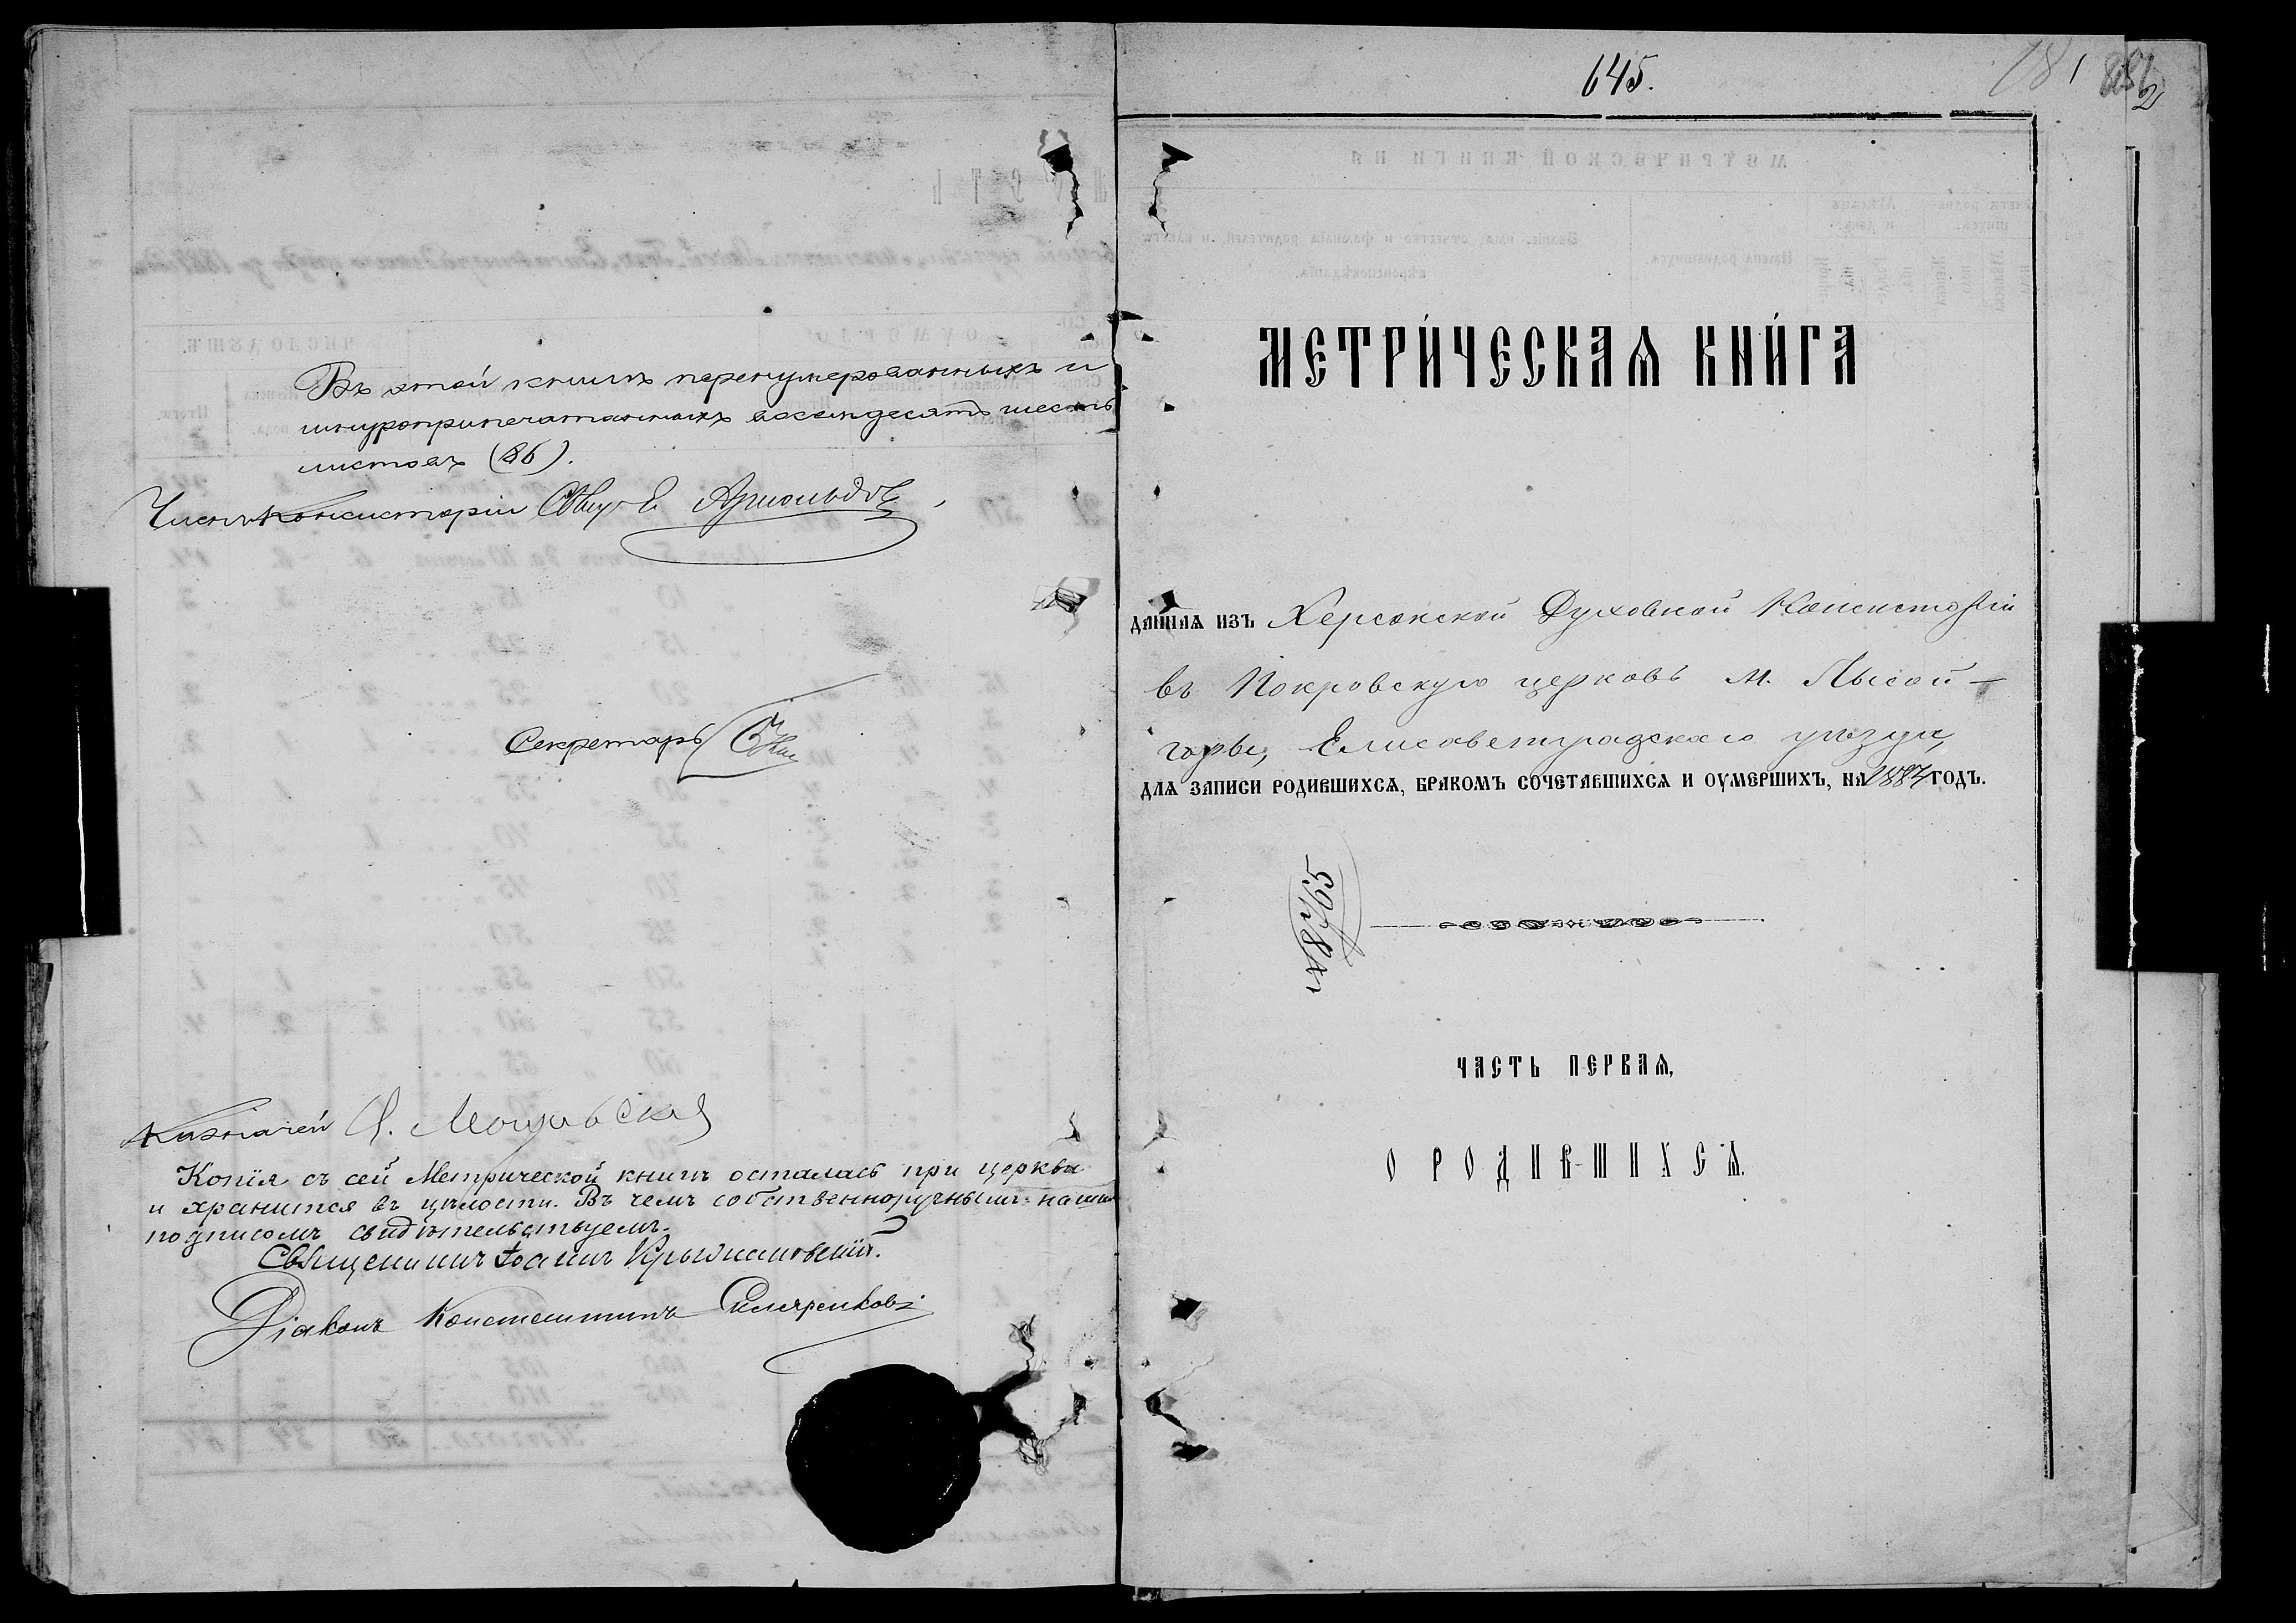 Въ этой книгѣ перенумерованныхъ и
шнуроприпечатанныхъ восемьдесятъ шесть
листовъ (86).
Членъ Консисторіи
Секретарь
Казначей
Копія съ сей Метрической книги осталась при церкви
и хранится въ цѣлости. Въ чемъ собственноручнымъ нашимъ
подписомъ свидѣтельствуемъ.
Священникъ Іоаннъ Крыжановскій.
Діаконъ Константинъ
645.
МЕТРИ́ЧЕСКАѦ КНИ́ГА
ДАННАѦ ИЗЪ Херсонской Духовной Консисторіи
въ Покровскую церковь м. Лысой-
горы, Елисаветградскаго уѣзда,
ДЛѦ ЗАПИСИ РОДИВШИХСѦ, БРАКОМЪ СОЧЕТАВШИХСѦ И ОУМЕРШИХЪ, НА 1887 ГОДЪ.
ЧАСТЬ ПЕРВАѦ,
О РОДИВШИХСѦ.